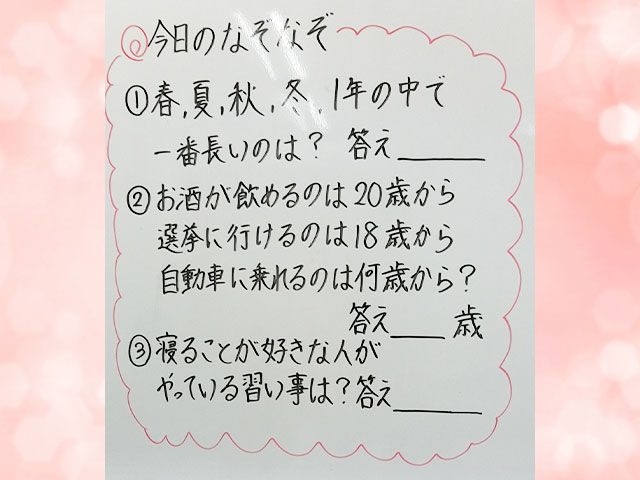 今日のなぞなぞ
①春,夏,秋,冬,1年の中で
一番長いのは? 答え______
②お酒が飲めるのは20歳から
選挙に行けるのは18歳から
自動車に乗れるのは何歳から?
答え____歳
③寝ることが好きな人が
やっている習い事は?答え______